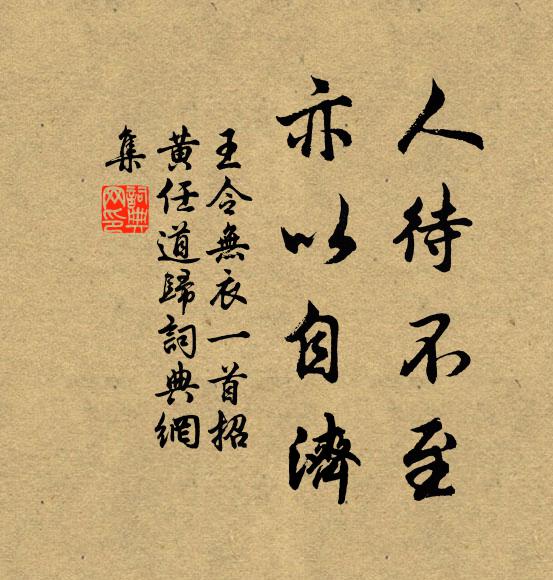 人待不至
亦以自濟
王令無衣一首招
黃任道歸詞典網
集
詞典
网印